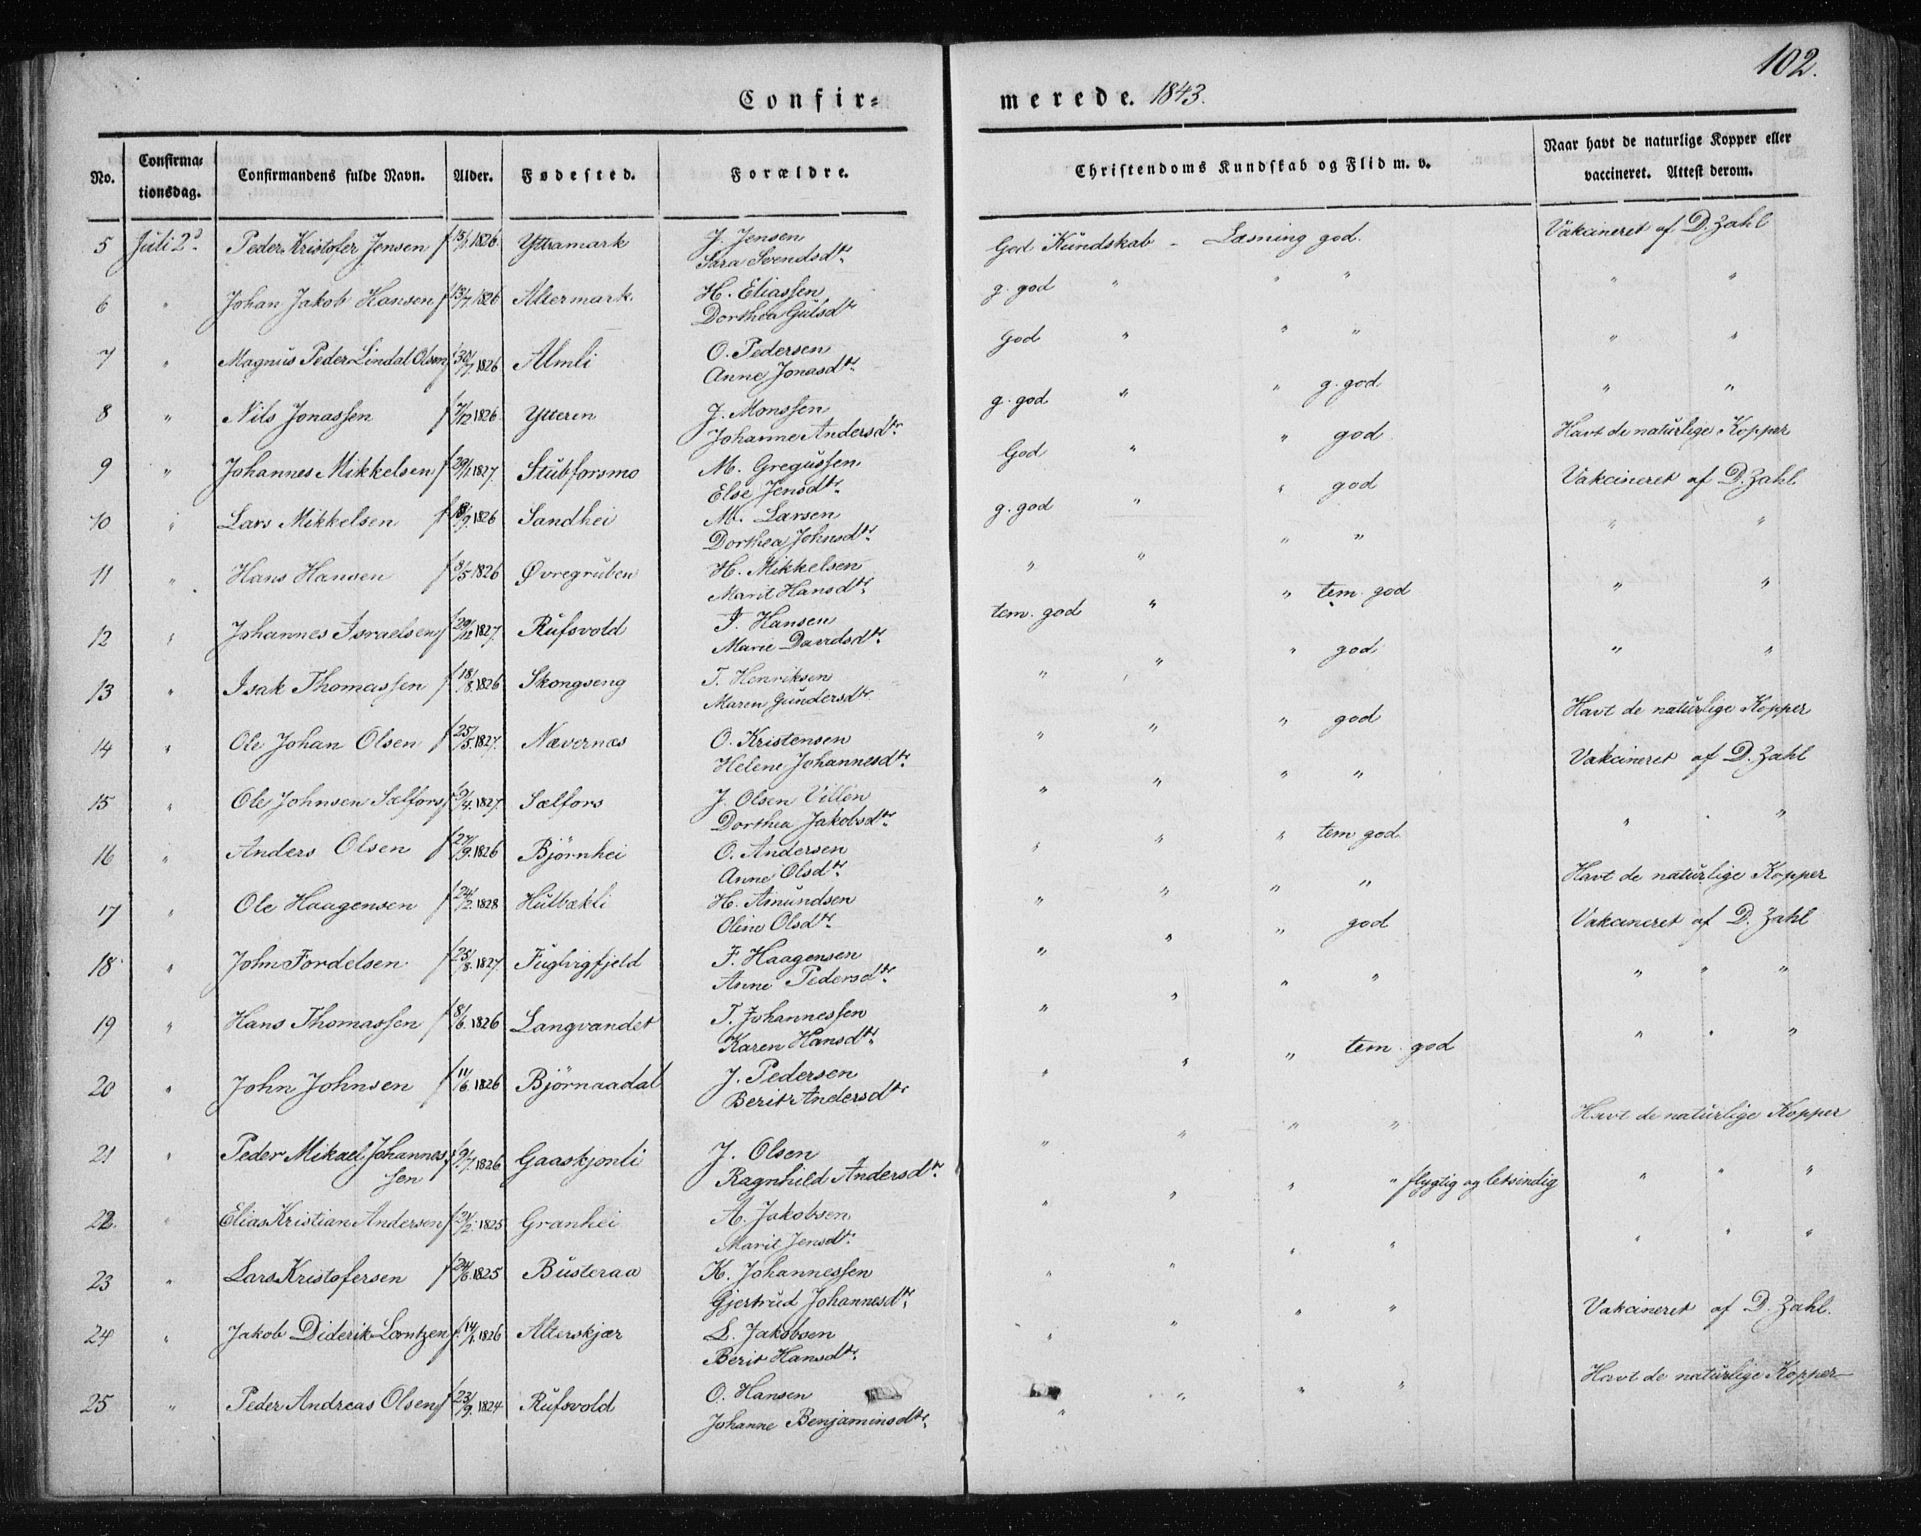 102.
Confir- merede. 1843.
No. Confirmationsdag. Confirmandens fulde Navn. Alder. Fødested. Forældre. Christendoms Kundskab og Flid m. v. Naar havt de naturlige Kopper eller vaccineret. Attest derom.
5 Juli 2d. Peder Kristofer Jensen f 1826 Yttramark J. Jensen God Kundskab - Læsning god. Vakcineret af D. Zahl
Sara Svendsdtr.
6 " Johan Jakob Hansen f 13/7 1826 Altermark. H. Eliassen g. god " " " " "
Dorthea Gulsdtr
7 " Magnus Peder Lindal Olsen f 30/7 1826 Almli O. Pedersen God " " " " "
Anne Jonasdtr.
8 " Nils Jonassen f 7/12 1826 Ytteren J. Monssen g. god " " g. god " "
Johanne Andersdtr.
9 " Johannes Mikkelsen f 1827. Stubforsmo M. Gregussen God " " god Havt de naturlige Kopper
Else Jensdtr.
10 " Lars Mikkelsen f 1826 Sandhei M. Larsen g. god " " god Vakcineret af D. Zahl
Dorthea Johnsdtr.
11 " Hans Hansen f 3/5 1826 Øvregruben H. Mikkelsen " " " " " "
Marit Hansdtr.
12 " Johannes Israelsen f 29/12 1827. Rufsvold I. Hansen tem. god " " tem. god " "
Marie Davidsdtr.
13 " Isak Thomassen f 18/8. 1826 Skongseng T. Henriksen " " " god " "
Maren Gundersdtr
14 " Ole Johan Olsen f 25/5. 1827. Nævernæs O. Kristensen " " " god Havt de naturlige Kopper
Helene Johannesdtr.
15 " Ole Johnsen Sælfors f 9/4. 1827. Sælfors J. Olsen Villen " " " " Vakcineret af D. Zahl
Dorthea Jakobsdtr.
16 " Anders Olsen f 27/9. 1826 Bjørnhei O. Andersen " " " tem god " "
Anne Olsdtr.
17 " Ole Haagensen f 24/2. 1828 Hulbækli H. Amundsen " " " " Havt de naturlige Kopper
Oline Olsdtr.
18 " John Fordelsen f 25/8. 1827. Fuglvigfjeld F. Haagensen " " " god Vakcineret af D. Zahl
Anne Pedersdtr.
19 " Hans Thomassen f 8/6. 1826 Langvandet T. Johannessen " " " " " " "
Karen Hansdtr.
20 " John Johnsen f 11/6. 1826 Bjørnaadal J. Pedersen " " " tem. god " " "
Berit Andersdtr
21 " Peder Mikael Johannes- f 9/7 1826 Gaaskjønli J. Olsen " " " " Havt de naturlige Kopper
sen Ragnhild Andersdtr.
22. " Elias Kristian Andersen f 21/2. 1825 Granhei A. Jakobsen " " " " flygtig og letsindig " " "
Marit Jensdtr.
23 " Lars Kristofersen f 24/6. 1825 Busteraa K. Johannessen " " " " " " "
Gjertrud Johannesdtr.
24 " Jakob Diderik Lorntzen f. 14/1. 1826 Alterskjær L. Jakobsen " " " " Vakcineret af D. Zahl.
Berit Hansdtr.
25 " Peder Andreas Olsen f 23/9. 1824. Rufsvold O. Hansen " " " " Havt de naturlige Kopper
Johanne Benjaminsdtr.